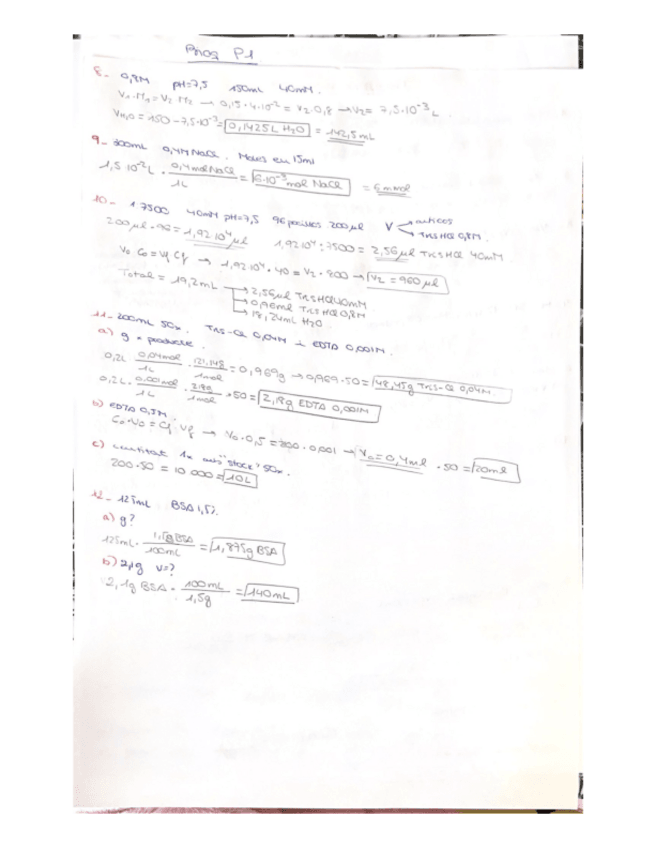 Prog P1
8- 0,8M pH=7,5 150mL 40mM.
V1·M1=V2·M2 → 0,15·4·10⁻² = V2·0,8 → V2= 7,5·10⁻³ L
VH2O = 150-7,5·10⁻³= 0,1425L H2O = 142,5mL
9- 300mL 0,4M NaCl. Mols en 15ml
1,5 10⁻²L · 0,4molNaCl / 1L = 6·10⁻³ mol NaCl = 6mmol
10- 1:7500 40mM pH=7,5 96 pocillos 200µl V → anticos → TRSHCl 0,8M.
200µl·96= 1,92 10⁴ µl 1,92 10⁴:7500 = 2,56µl TRSHCl 40mM
V0 C0 = Vf Cf → 1,92·10⁴·40 = V2·800 → V2 = 960µl
Total = 19,2mL → 2,56µl TRSHCl 40mM
→ 0,96ml TRSHCl 0,8M
→ 18,24mL H2O.
11- 200mL 50x. TRS-Cl 0,04M i EDTA 0,001M.
a) g producte
0,2L 0,04mol / 1L · 121,14g / 1mol = 0,969g → 0,969·50= 48,45g TRS-Cl 0,04M
0,2L· 0,001mol / 1L · 1mol ·50= 2,18g EDTA 0,001M
b) EDTA
C0·V0 = Cf·Vf → V0·0,5 = 200·0,001 → V0=0,4ml ·50 = 20ml
c) 1x "stock" 50x.
200·50 = 10 000 = 10L
12- 125mL BSA 1,5%.
a) g?
125mL· 1,5gBSA / 100mL = 1,875g BSA
b) 2,1g V=?
2,1g BSA · 100mL / 1,5g = 140mL